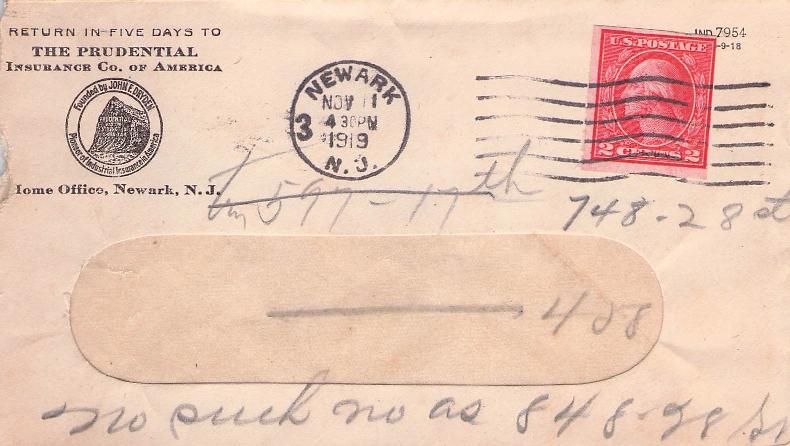 RETURN IN FIVE DAYS TO
THE PRUDENTIAL
INSURANCE CO. OF AMERICA
Founded by JOHN F. DRYDEN
Pioneer of Industrial Insurance in America
Home Office, Newark, N. J.
NEWARK
NOV 11
4 30PM
1919
N. J.
3
U.S. POSTAGE
2 CENTS 2
IND 7954
-9-18
597-17th
748-28 st
no such no as 848-28 St